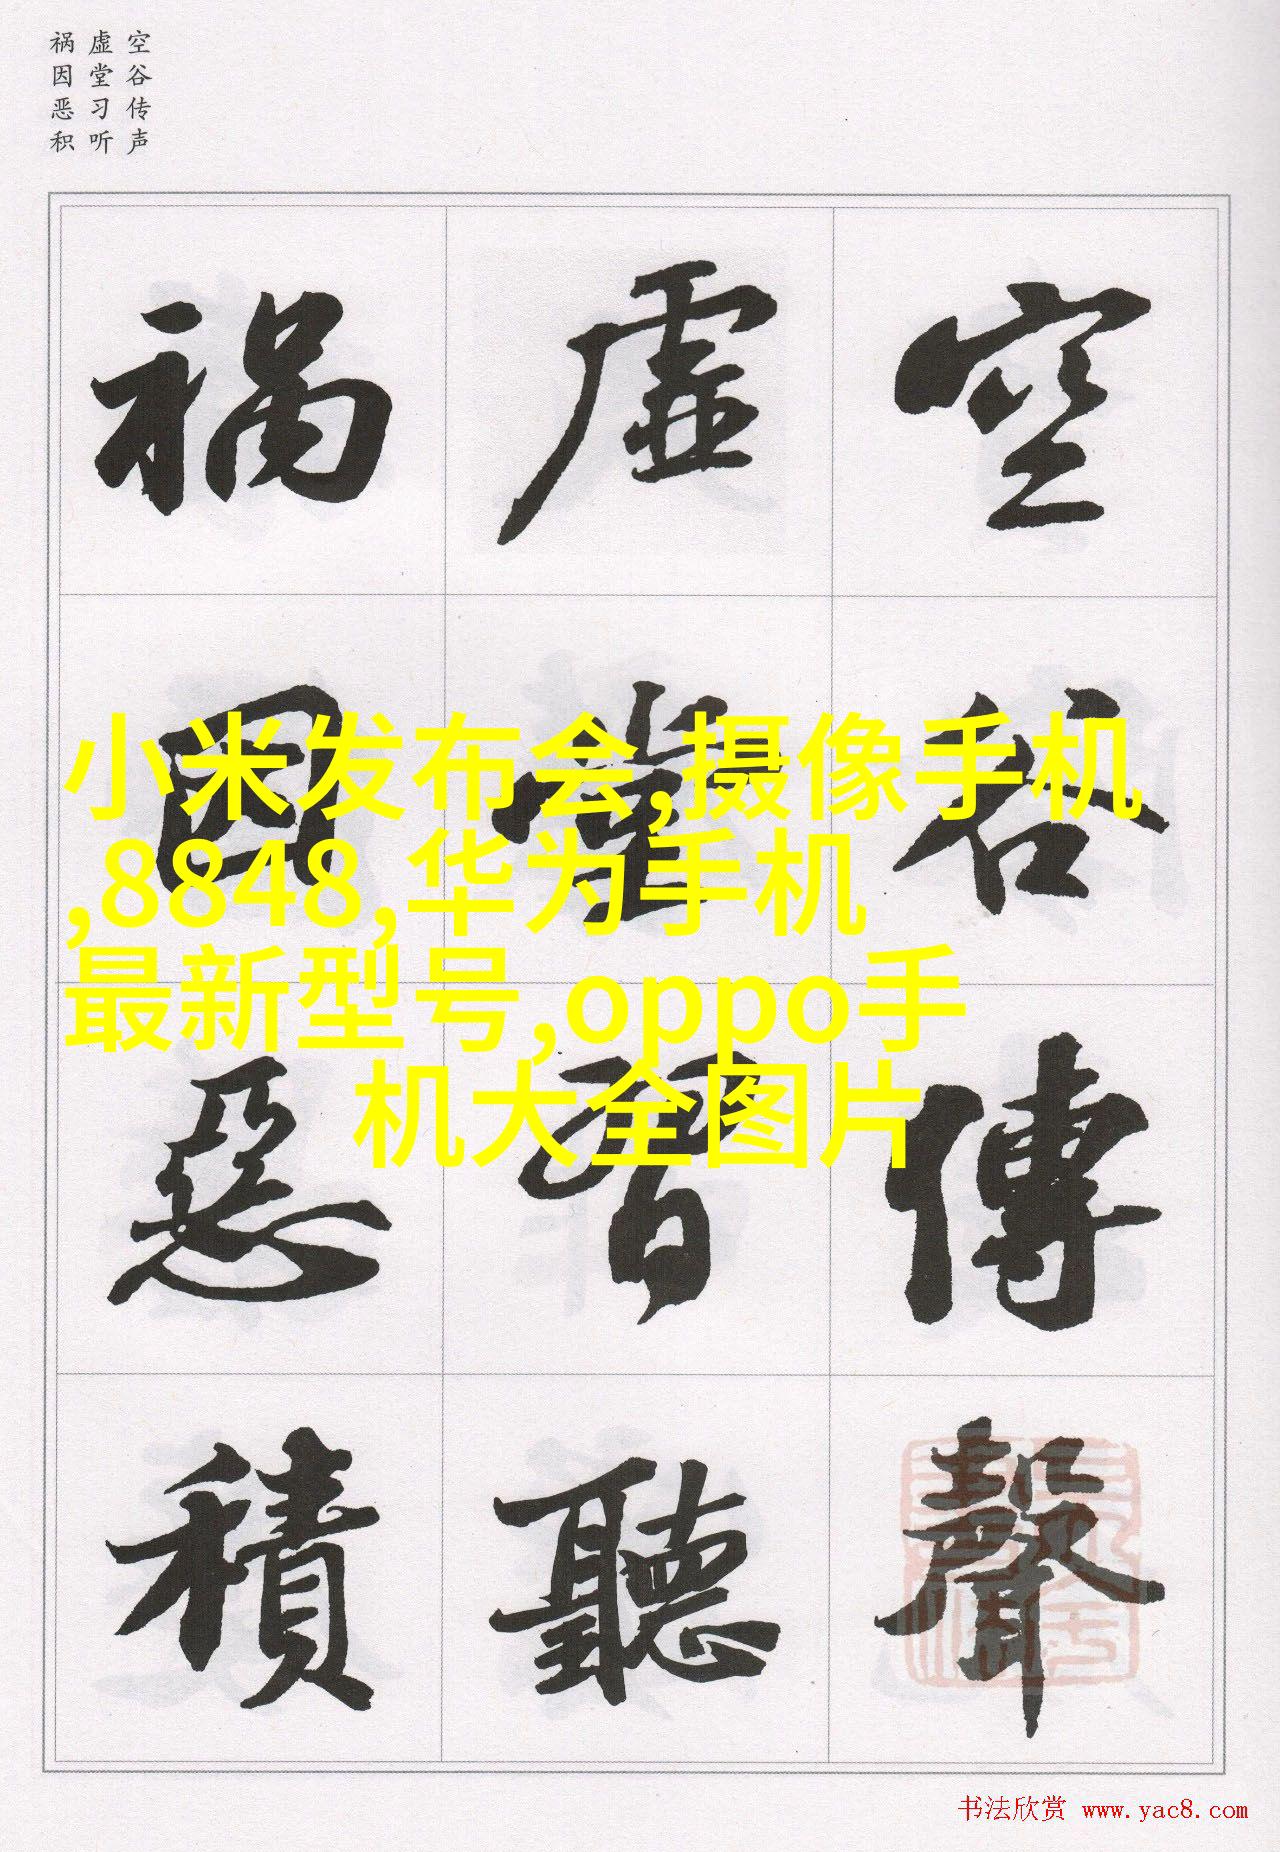 空谷传声
虚堂习听
祸因恶积
空谷傳聲
虚堂習聽
禍因惡積
小米发布会,摄像手机
,8848,华为手机
最新型号,oppo手
机大全图片
书法欣赏 www.yac8.com